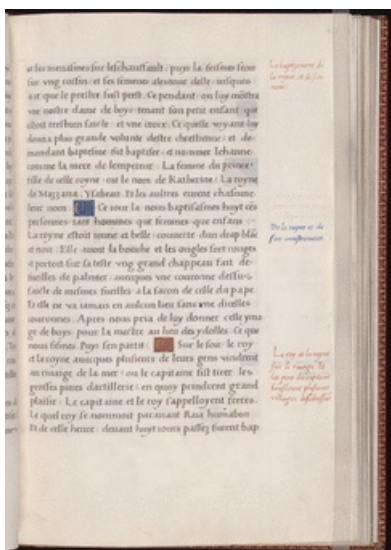 et les menasmes sur leschauffault. puys la feismes seoir
sur vng cossin. et ses femmes alentour delle. iusques
ad que le prestre fust prest. Ce pendant. on luy mõstra
vne nostre dame de boys tenant son petit enfant qui
estoit tresbien faicte. et vne croix. Ce quelle voyant luy
donna plus grande volunte destre chrestienne. et de-
mandant baptesme fut baptisee. et nommee Iehanne.
comme la mere de lempereur. La femme du prince.
fille de celle royne. eut le nom de Katherine. La royne
de Mazzana. Ysabeau. Et les aultres eurent chascune
leur nom. Ce iour la. nous baptisasmes huyt cẽs
personnes. tant hommes que femmes que enfans.
La royne estoit ieune et belle. couuerte dun drap blãc
et noir. Elle auoit la bouche et les ongles fort rouges
et portoit sur sa teste vng grand chappeau fait de
fueilles de palmier. auecques vne couronne dessus
faicte de mesmes fueilles a la facon de celle du pape.
Et elle ne va iamais en aulcun lieu sans vne dicelles
couronnes. Apres nous pria de luy donner celle yma
ge de boys. pour la mectre au lieu des ydolles. Ce que
nous feismes. Puys sen partit. Sur le soir. le roy
et la royne auecques plusieurs de leurs gens vindrent
au riuage de la mer. ou le capitaine fist tirer les
grosses pieces dartillerie. en quoy prindrent grand
plaisir. Le capitaine et le roy sappelloyent freres.
Le quel roy se nommoit parauant Raia humabon.
Et de celle heure. deuant huyt iours passez furent bap
Le baptisement de
la royne et de son
nom.
De la royne et de
son acoustrement
Le roy et la royne
sur le riuage. Et
les gens du capitaine